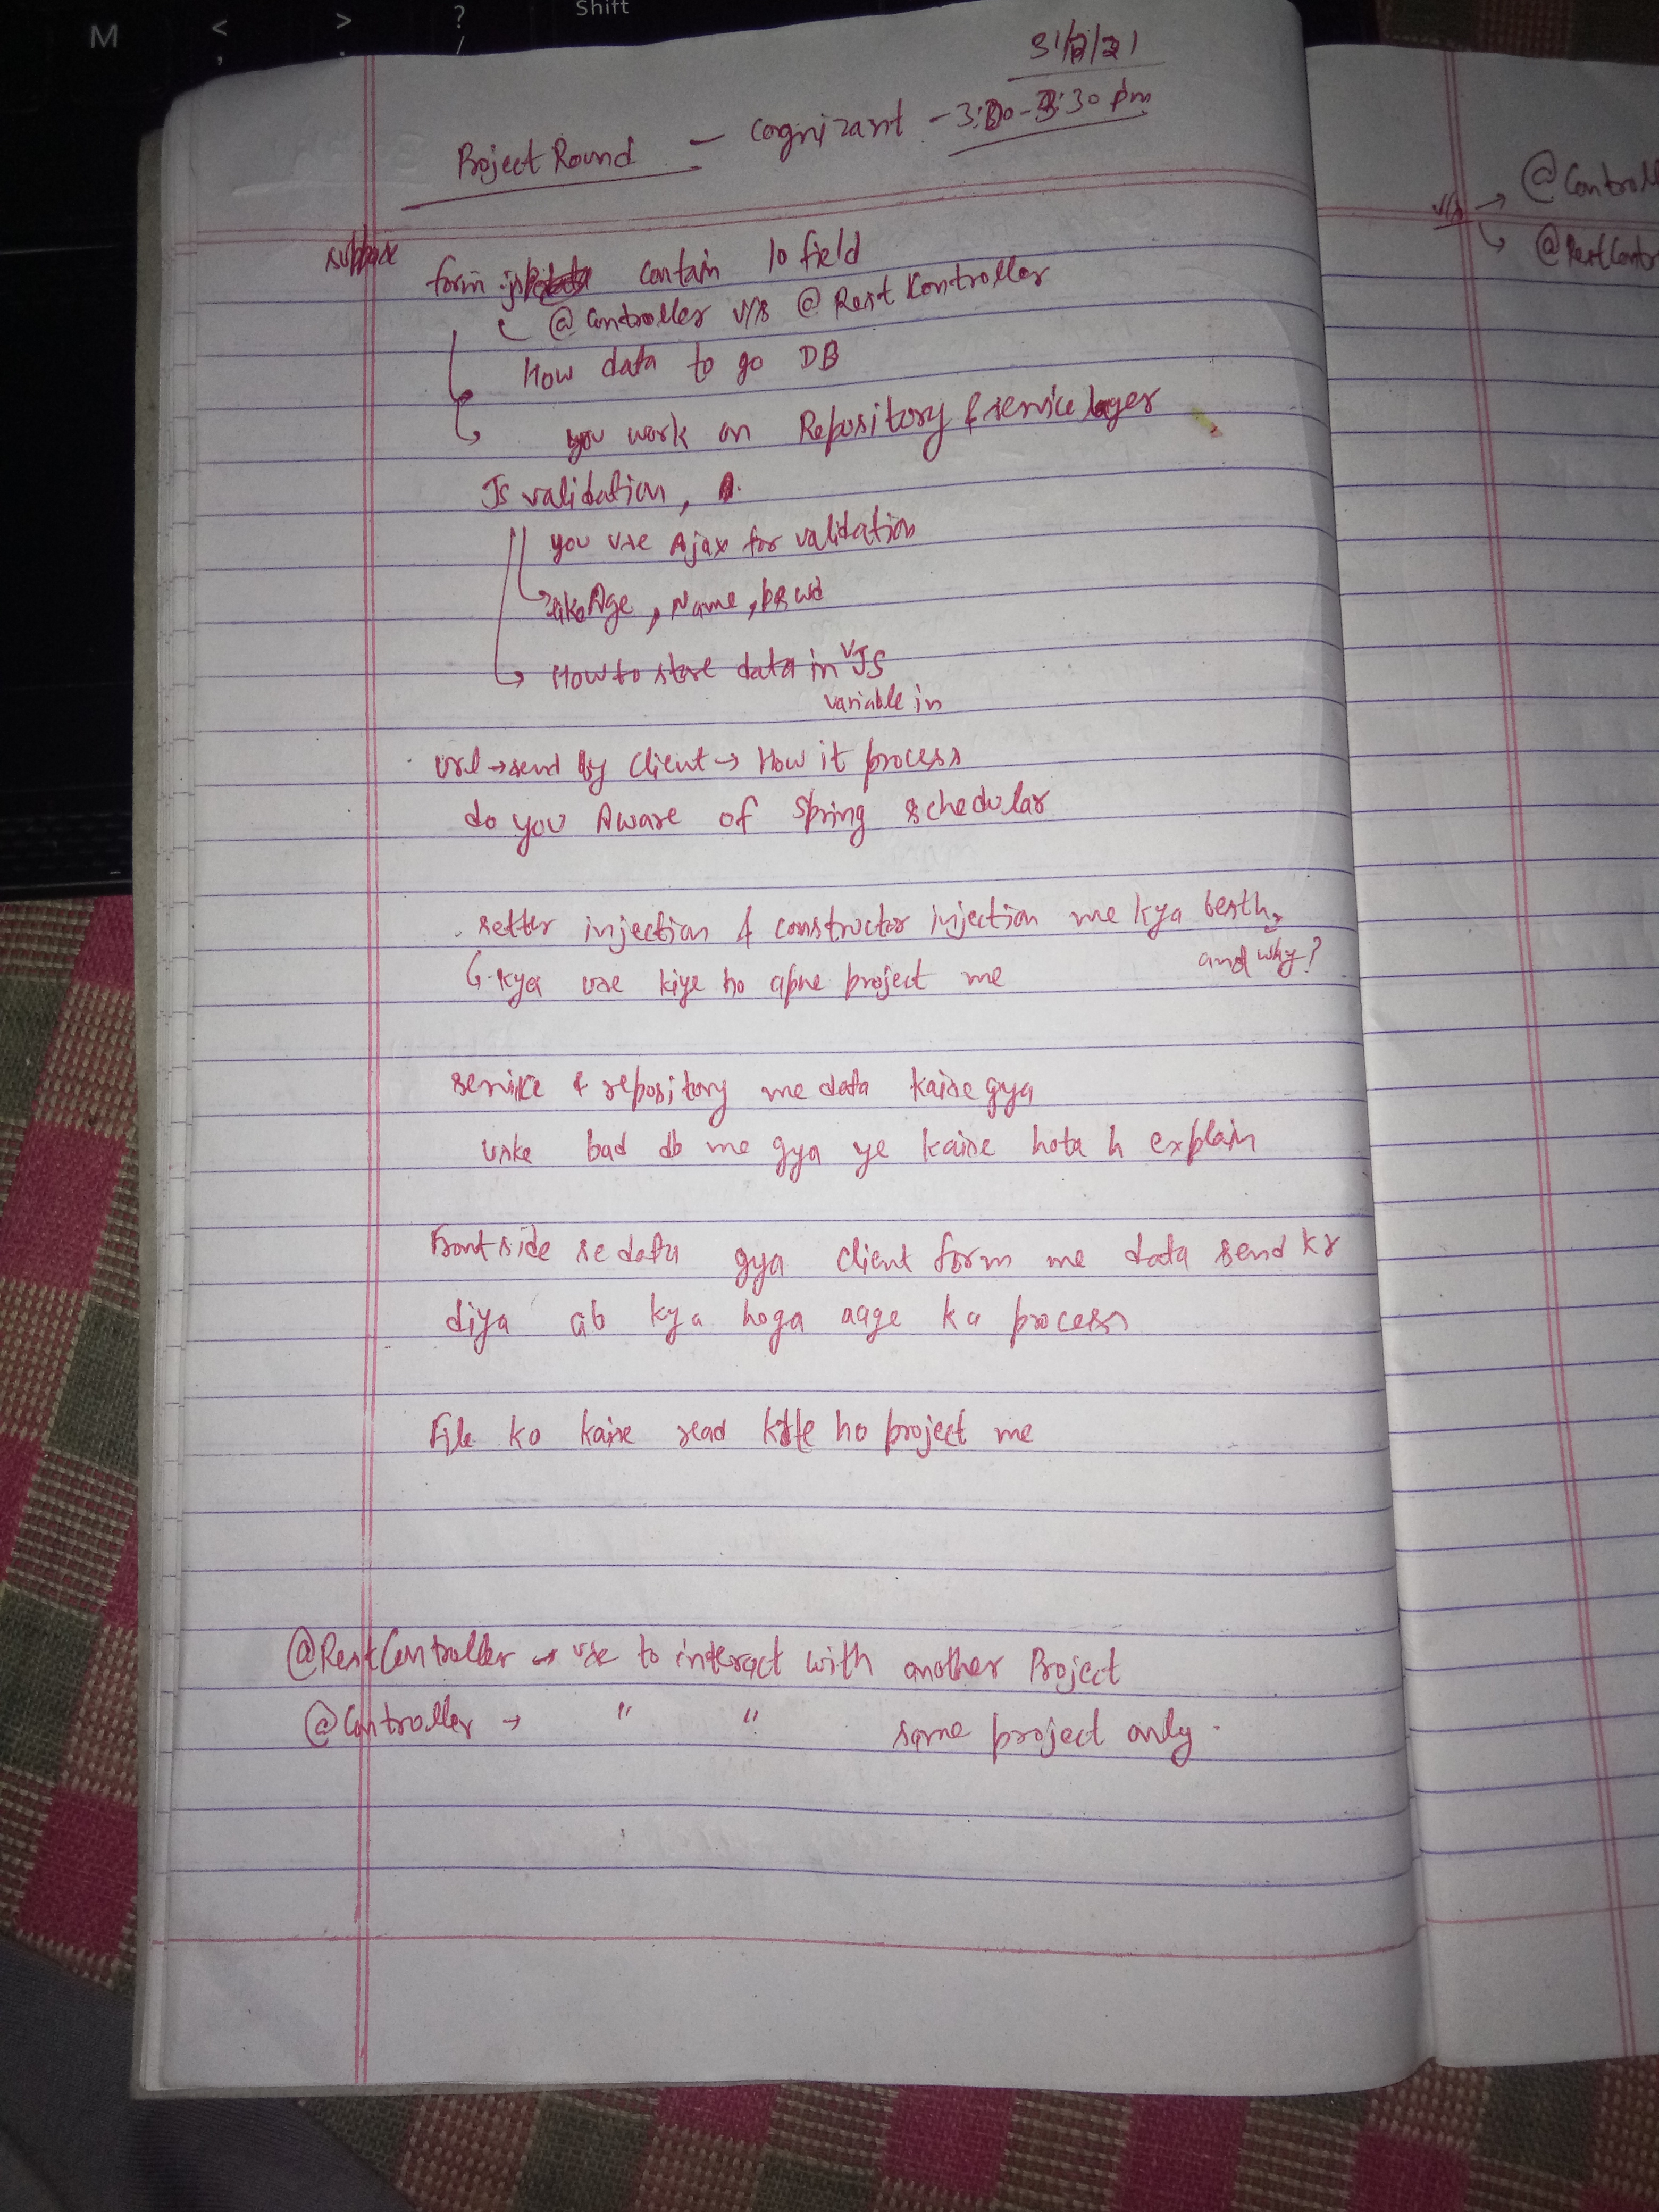 M
<
,
>
.
?
/
Shift
31/2/21
Project Round - Cognizant - 3:00-3:30 pm
suppose
form .jsp contain 10 field
@Controller v/s @Rest Kontroller
How data to go DB
you work on Repository & service layer
Js validation,
you use Ajax for validation
like Age, Name, pswd
How to store data in JS
variable in
url → send by client → How it process
do you Aware of spring schedular
setter injection & constructor injection me kya besth,
and why?
kya use kiye ho apne project me
service & repository me data kaise gya
uske bad db me gya ye kaise hota h explain
Front side se data gya client form me data send kr
diya ab kya hoga aage ka process
File ko kaise read krte ho project me
@RestController → use to interact with another Project
@Controller → " " same project only.
@Controll
v/s
@RestContr